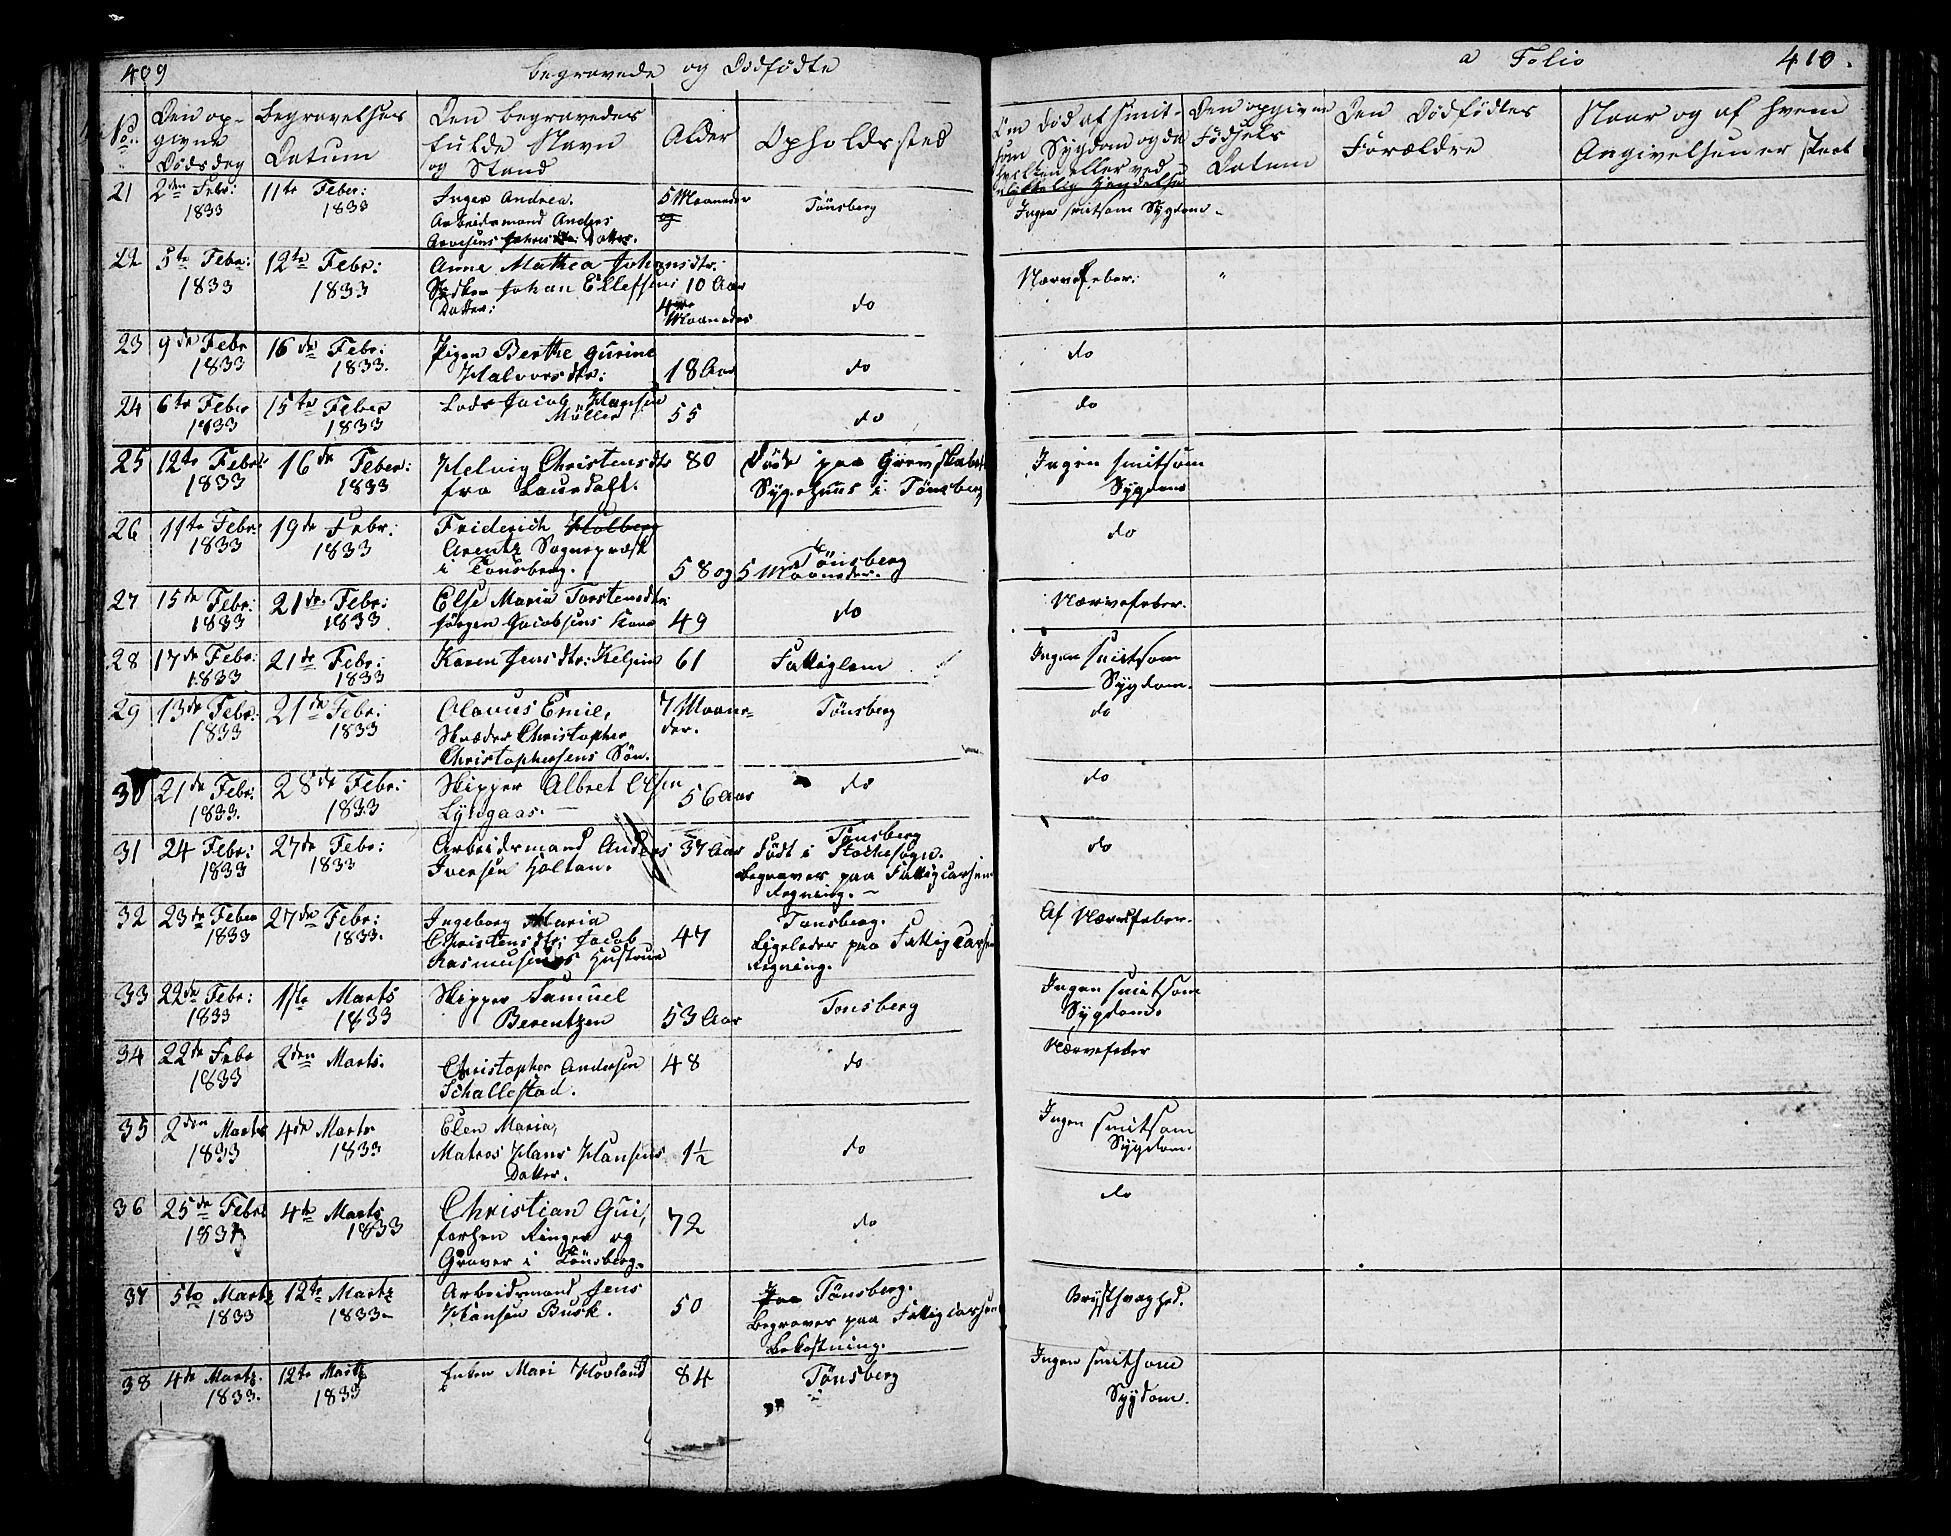 409 Begravede og Dødfødte a Folio 410.
No. Den opgivne Dødsdag Begravelses Datum Den begravedes fulde Navn og Stand Alder Opholdssted Om død af smitsom Sygdom og da hvilken eller ved ulykkelig Hendelse Den opgivne Fødsels Datum Den Dødfødtes Forældre Naar og af hvem Angivelsen er skeet
21 2den Febr: 11te Febr: Inger Andrea. 5 Maaneder Tönsberg Ingen smitsom Sygdom
1833 1833 Arbeidsmand Andres
Datter.
22 5te Febr: 12te Febr: Anne Mathea Johansdtr: Nærvefeber:
1833 1833 Johan Ellefsens 10 Aar do
Datter: 4 Maaneder
23 9de Febr 16de Febr: Pigen Berthe Gurine do
1833 1833. Halvorsdtr: 18 Aar do
24 6te Feber 15te Feber Lods Jacob Hansen 55 do do
1833 1833 Möller
25 12te Febr: 16de Feber: Helvig Christensdtr 80 Døde paa Grevskabets Ingen smitsom
1833 1833 fra Laurdahl. Sygehuus i Tönsberg Sygdom
26 11te Febr: 19de Febr: Friderich Holberg do
1833 1833 Arentz Sognepræst Tönsberg
i Tonsberg. 58 og 5 Maaneder.
27 15de Febr: 21de Febr: Else Maria Torstensdtr: do Nærvefeber.
1833 1833 Jørgen Jacobsens Kone 49
28 17de Febr: 21de Febr: Karen Jensdtr: 61 Fattiglem Ingen smitsom
1833 1833 Sygdom.
29 13de Febr: 21de Febr: Olavus Emil, 7 Maane- Tönsberg do
1833 1833 Skræder Christopher der.
Christophersens Søn.
30 21de Febr: 28de Febr: Skipper Albret Olsen 56 Aar do do
1833. 1833 Lyngaas.
31 24 Febr: 27de Febr: Arbeidsmand Anders 37 Aar Tønsberg do
1833 1833 Iversen Holtan. Født i Stokkesogn.
Begraves paa Fattigcassens
Regning.
32 23de Feber 27de Febr: Ingeborg Maria 47 Tonsberg. Af Nærvefeber.
1833 1833. Christensdtr: Jacob Ligeledes paa Fattigcassens
Rasmusens Hustrue Regning.
33 22de Febr: 1ste Marts Skipper Samuel Tonsberg Ingen smitsom
1833 1833 Berentzen 53 Aar Sygdom.
34 22de Febr 2den Marts. Christopher Andersen 48 do Nærvefeber
1833 Schallestad.
35 2den Marts 4de Marts Elen Maria, Ingen smitsom
1833 1833 Matros Hans Hansens 1½ do Sygdom.
Datter.
36 25de Febr 4de Marts Christian Gui, 72 do do
1833 Ringer og
Graver i Tönsberg.
37 5te Martz 12te Martz Arbeidsmand Jens 50 Tønsberg. Brystsvaghed.
1833 1833 Hansen Busk. Begraves paa Fattigcassens
Bekostning.
38 4de Martz. 12te Martz Enken Mari Hovland 84 Tönsberg Ingen smitsom
1833. 1833 Sygdom.